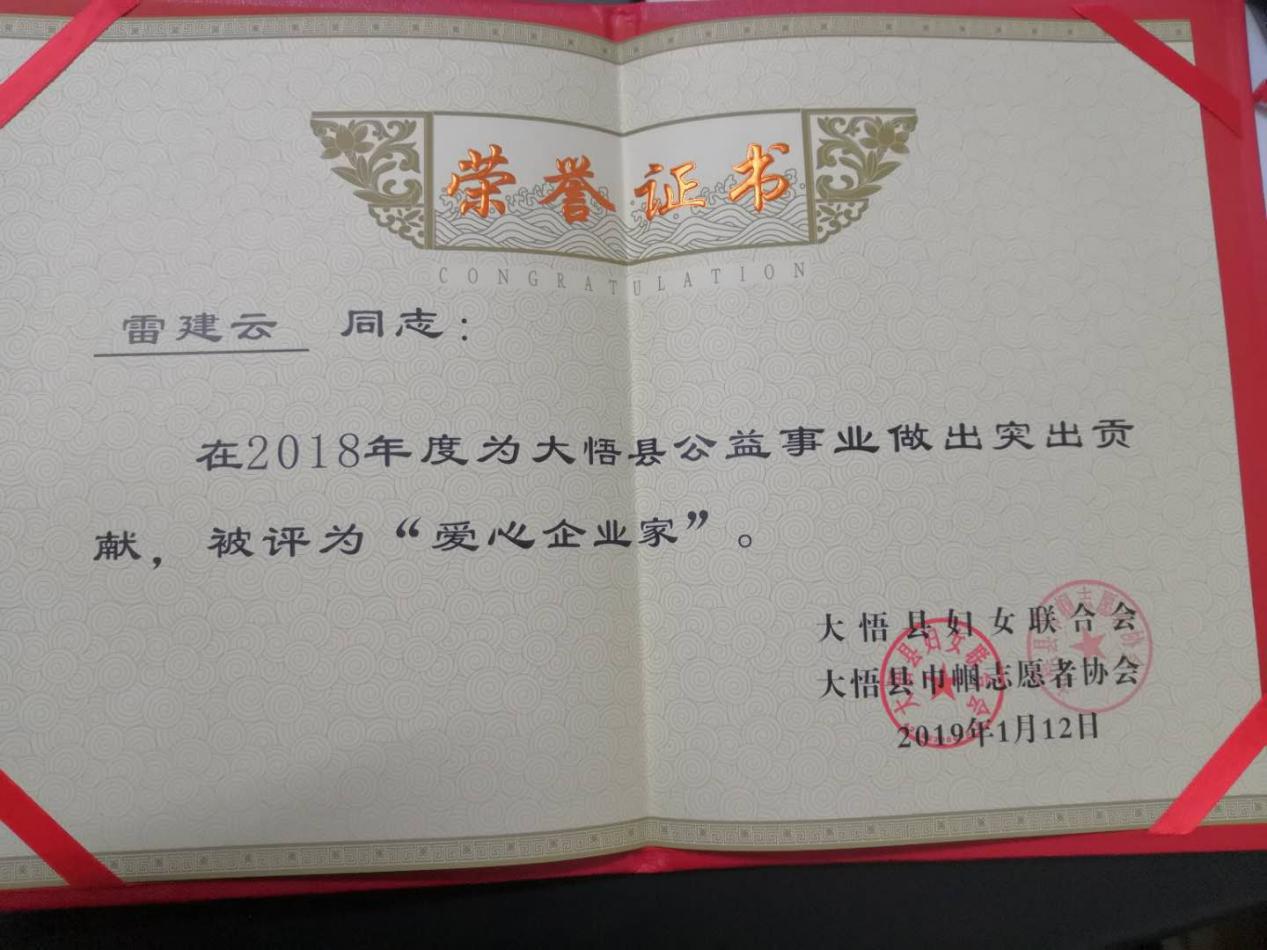 荣誉证书
CONGRATULATION
雷建云 同志：
在2018年度为大悟县公益事业做出突出贡
献，被评为“爱心企业家”。
大悟县妇女联合会
大悟县巾帼志愿者协会
2019年1月12日
大悟县妇女联合会